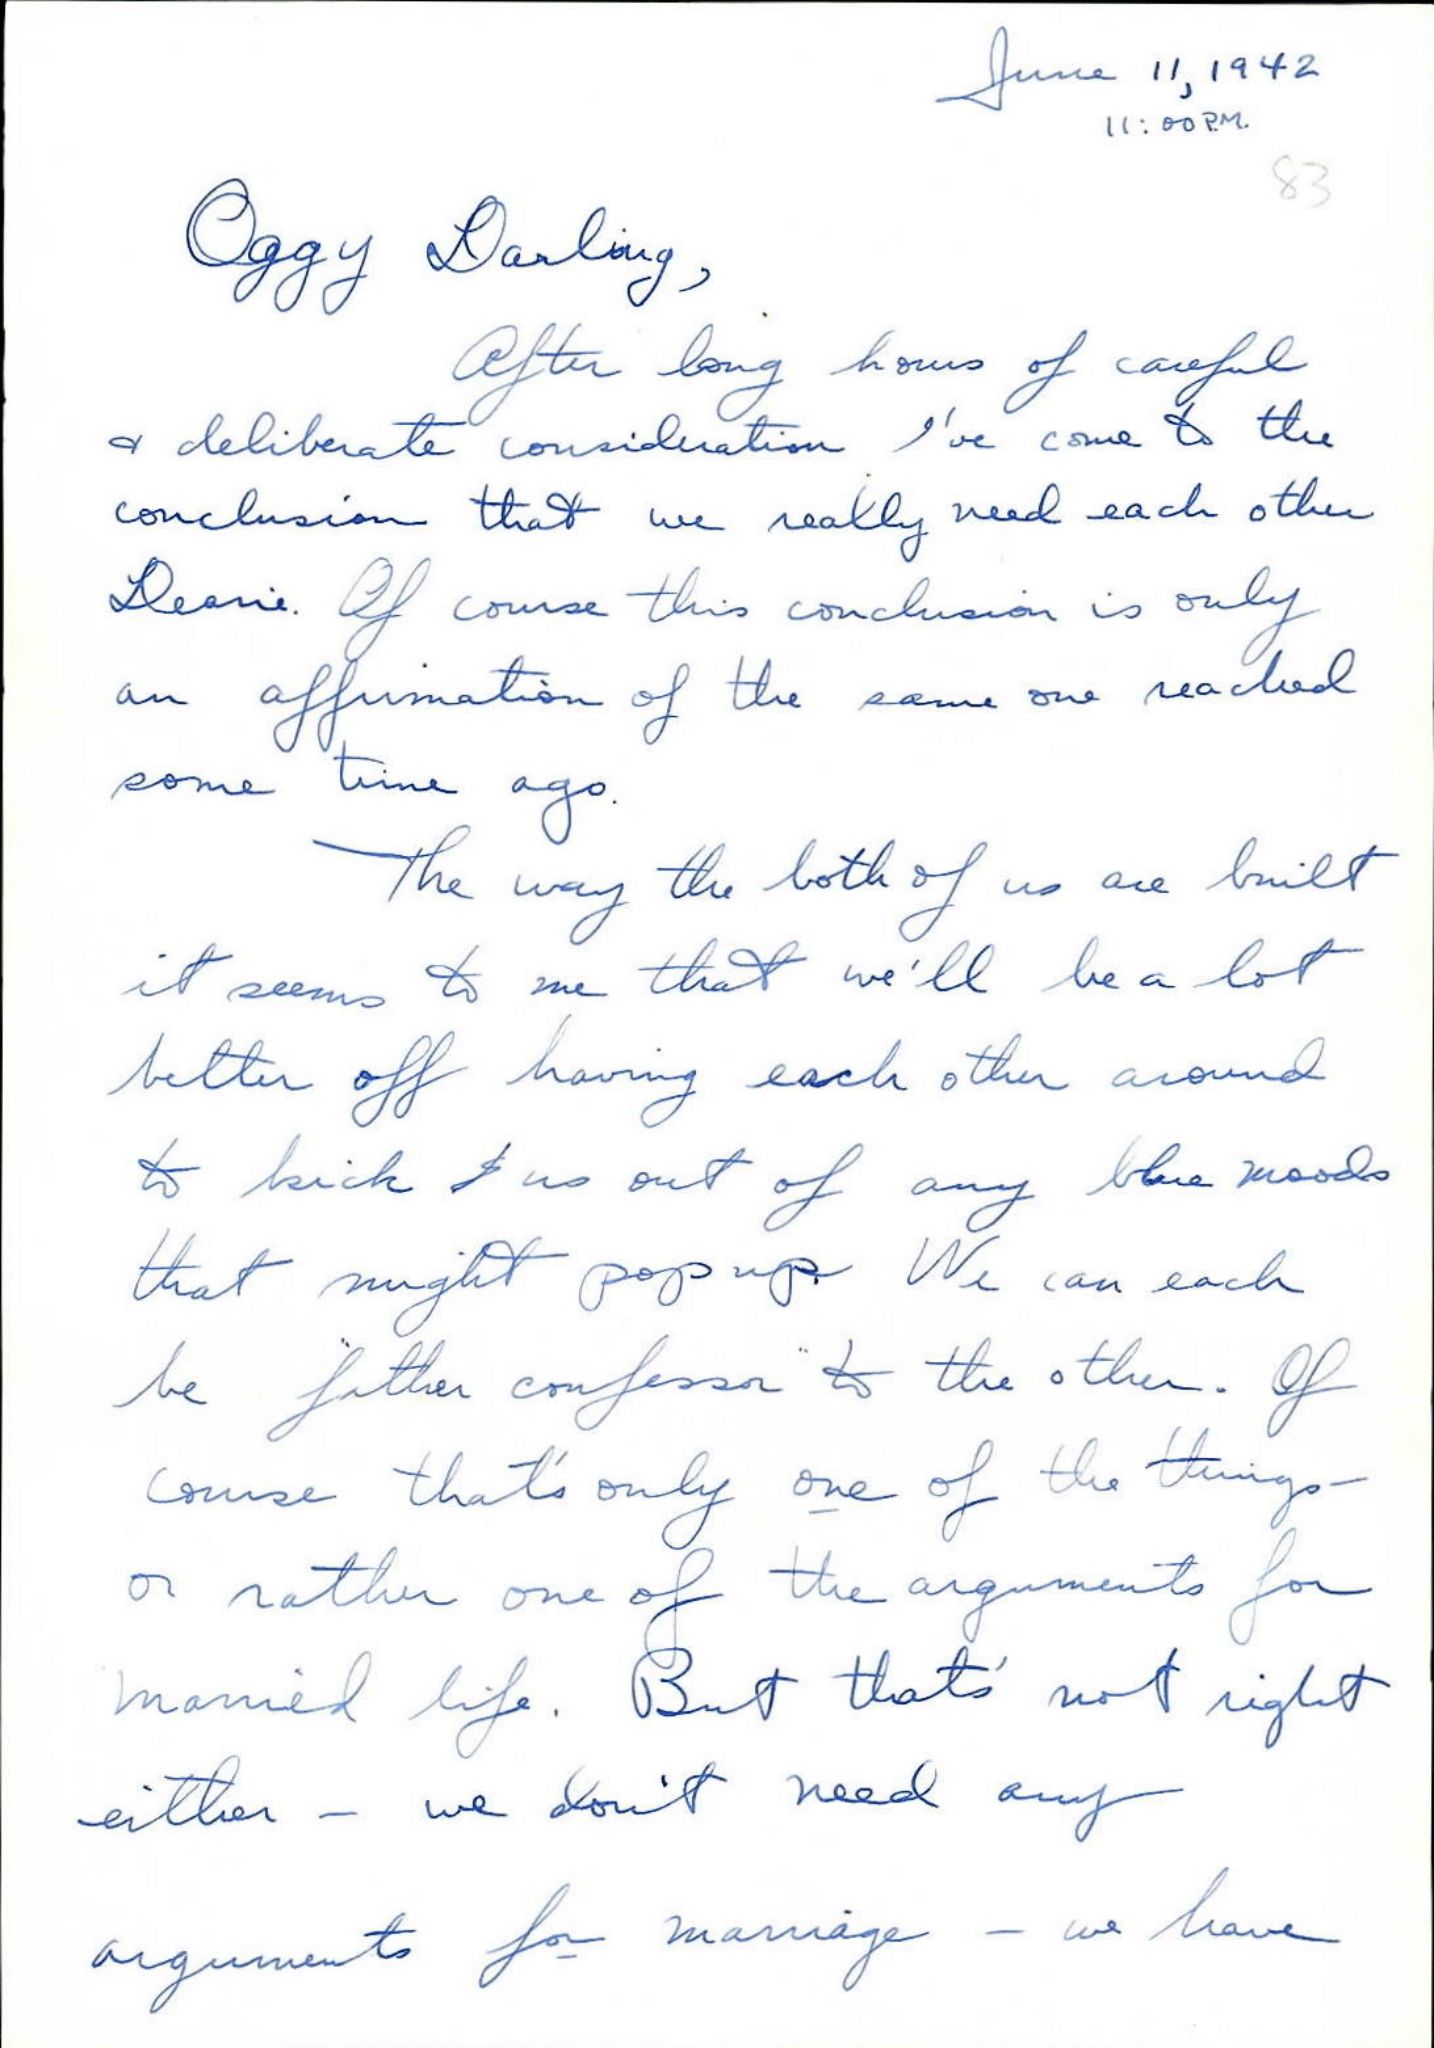 June 11, 1942
11:00 P.M.
83
Oggy Darling,
After long hours of careful
& deliberate consideration I've come to the
conclusion that we really need each other
Dearie. Of course this conclusion is only
an affirmation of the same one reached
some time ago.
The way the both of us are built
it seems to me that we'll be a lot
better off having each other around
to kick us out of any blue moods
that might pop up. We can each
be "father confessor" to the other. Of
course that's only one of the things -
or rather one of the arguments for
married life. But that's not right
either - we don't need any
arguments for marriage - we have